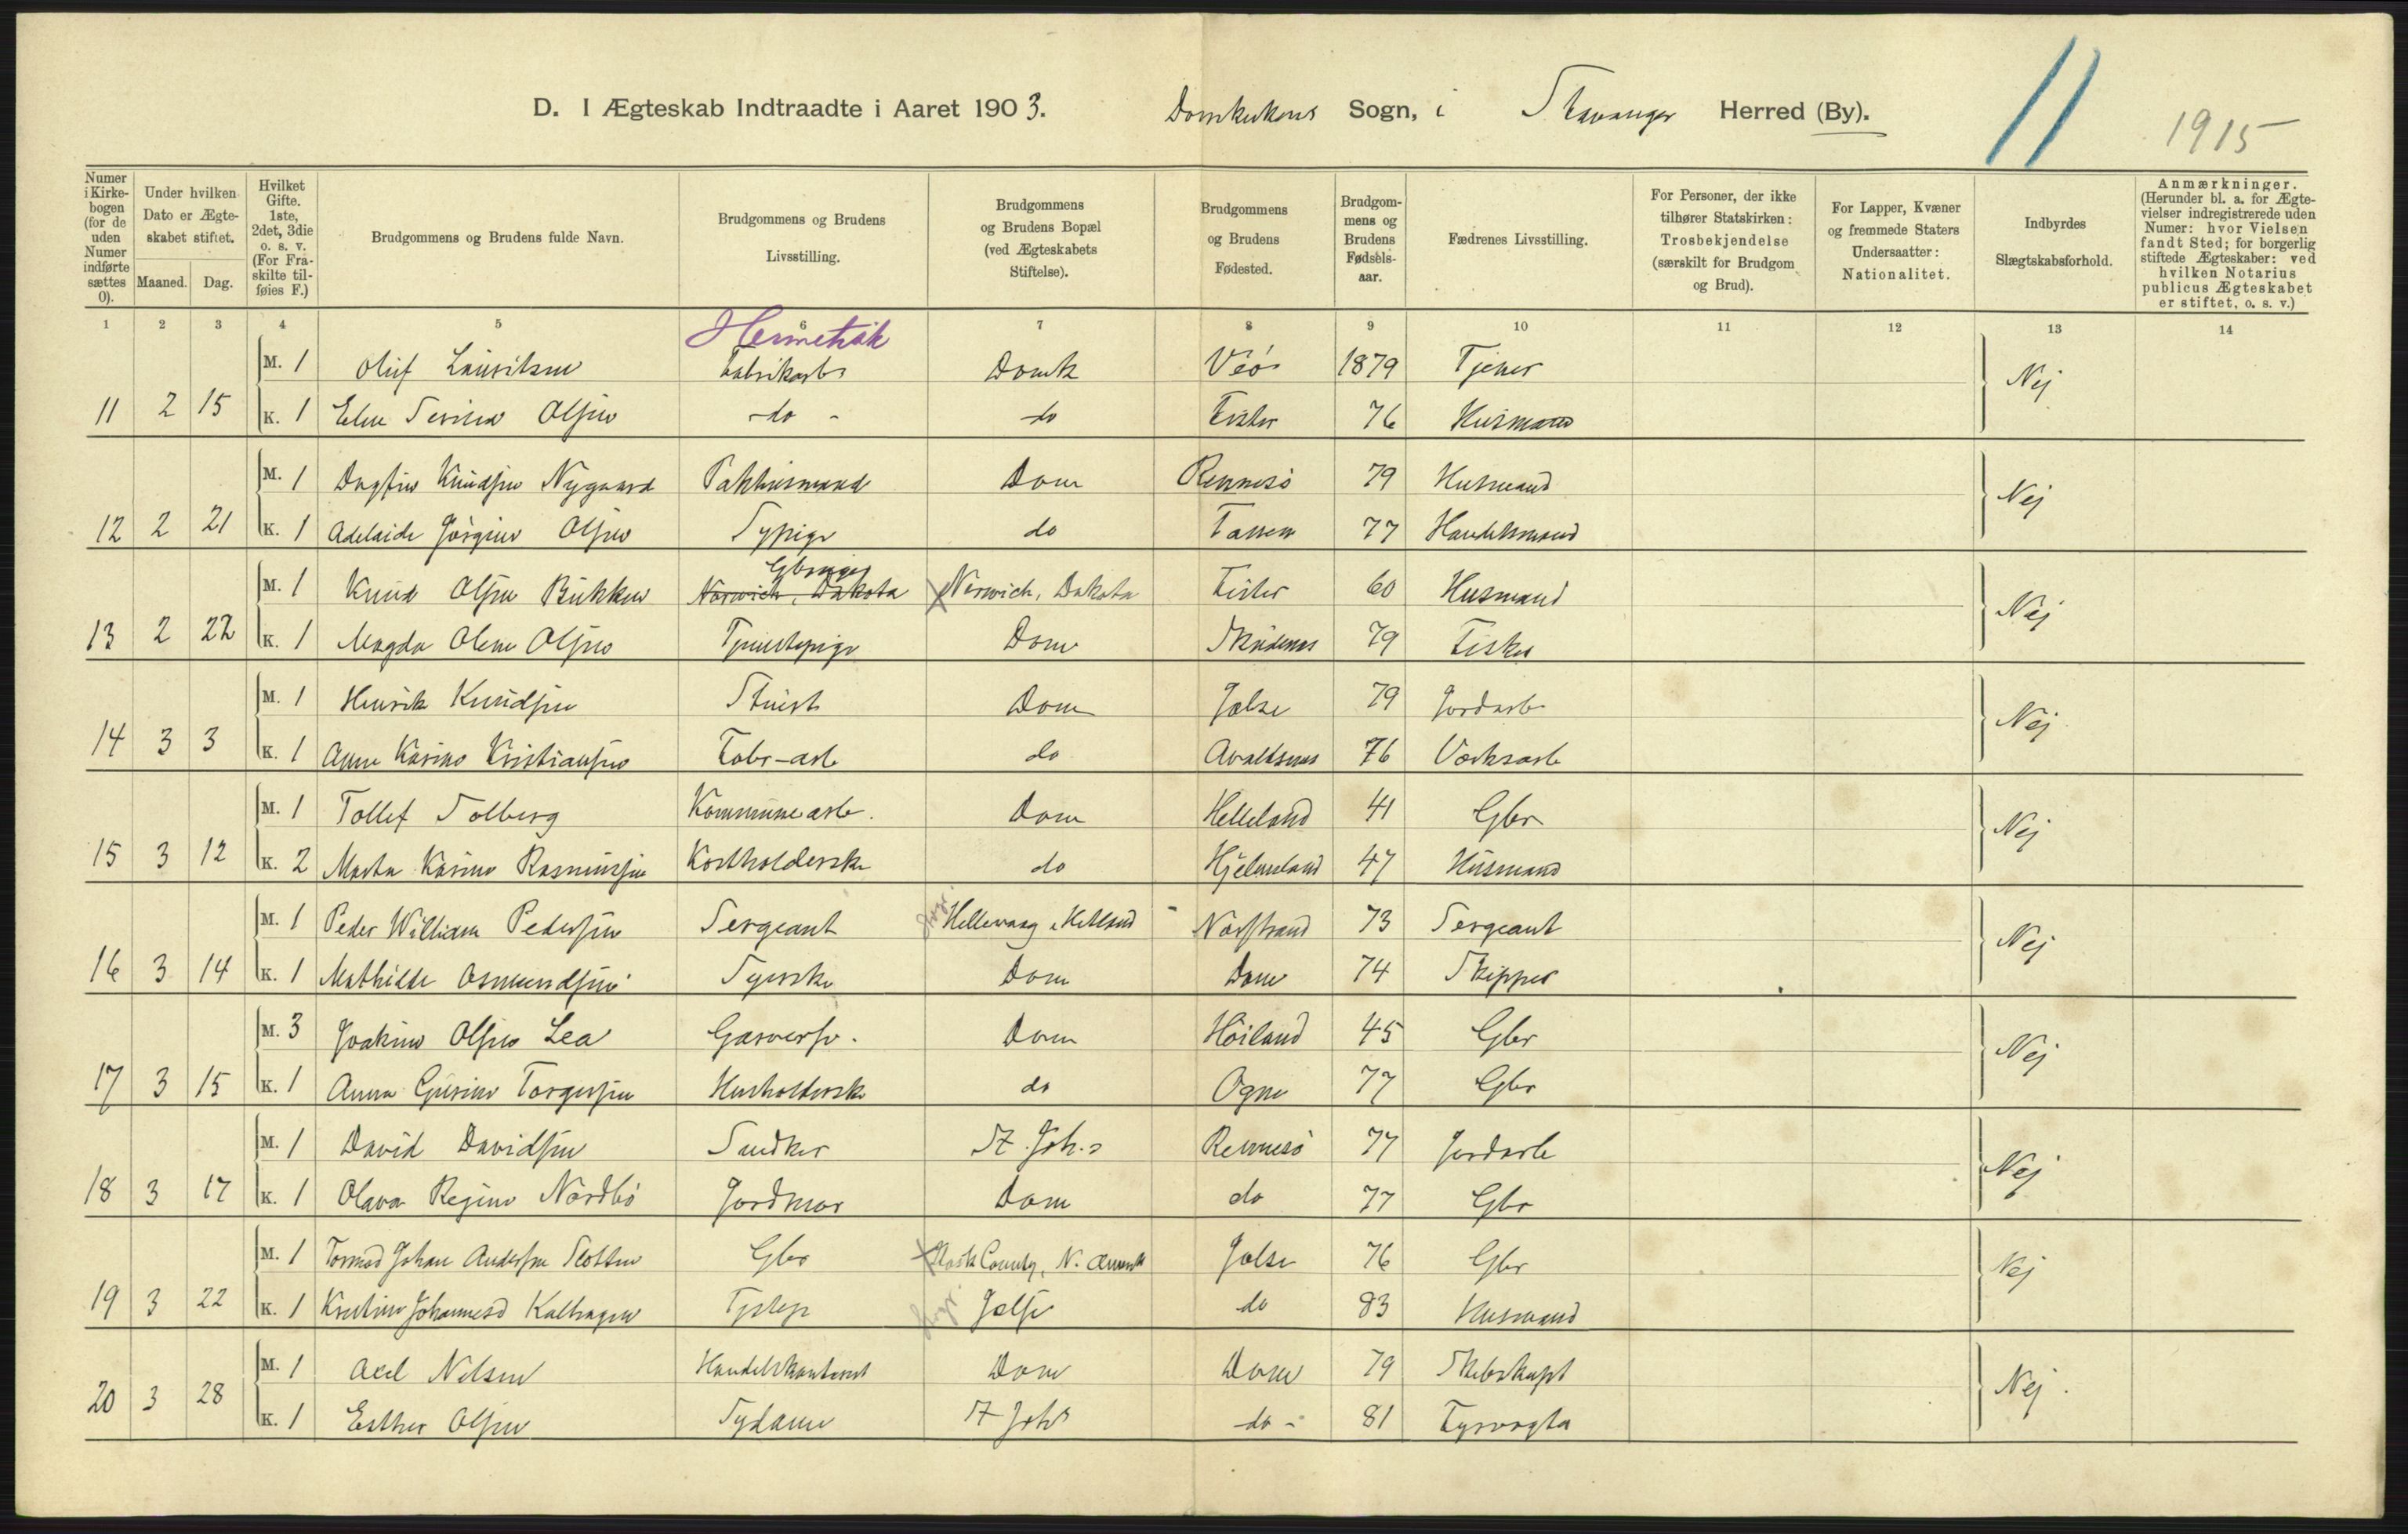 D. I Ægteskab Indtraadte i Aaret 1903. Domkirkens Sogn, i Stavanger Herred (By). 11 1915
Numer i Kirkebogen (for de uden Numer indførte sættes 0).
Under hvilken Dato er Ægteskabet stiftet. Maaned. Dag.
Hvilket Gifte. 1ste, 2det, 3die o. s. v. (For Fraskilte tilføies F.)
Brudgommens og Brudens fulde Navn.
Brudgommens og Brudens Livsstilling.
Brudgommens og Brudens Bopæl (ved Ægteskabets Stiftelse).
Brudgommens og Brudens Fødested.
Brudgommens og Brudens Fødselsaar.
Fædrenes Livsstilling.
For Personer, der ikke tilhører Statskirken: Trosbekjendelse (særskilt for Brudgom og Brud).
For Lapper, Kvæner og fremmede Staters Undersaatter: Nationalitet.
Indbyrdes Slægtskabsforhold.
Anmærkninger. (Herunder bl. a. for Ægtevielser indregistrerede uden Numer: hvor Vielsen fandt Sted; for borgerlig stiftede Ægteskaber: ved hvilken Notarius publicus Ægteskabet er stiftet, o. s. v.)
1 2 3 4 5 6 7 8 9 10 11 12 13 14
Hermetik
M. 1 Oluf Lauritsen Fabrikarb Domk 1879 Tjener Nej
11 2 15 K. 1 Elen Serina Olsen do do Fister 76 Husmand
M. 1 Dagfin Knudsen Nygaard Pakhusmand Dom Rennesö 79 Husmand Nej
12 2 21 K. 1 Adelaide Jörgine Olsen Sypige do 77 Handelsmand
M. 1 Knud Olsen Bukken Gbruger Norwich, Dakota Norwich, Dakota Fister 60 Husmand Nej
13 2 22 K. 1 Magda Olene Olsen Tjenestepige Dom Skudenes 79 Fisker
M. 1 Henrik Knudsen Stuert Dom Jelse 79 Jordarb Nej
14 3 3 K. 1 Anne Karine Kristiansen Fabr-arb do Avaldsnes 76 Værksarb
M. 1 Tollef Solberg Kommunearb. Dom Helleland 41 Gbr Nej
15 3 12 K. 2 Marta Karine Rasmussen Kostholderske do Hjelmeland 47 Husmand
M. 1 Peder William Pedersen Sergeant Hellevaag i Hetland Narstrand 73 Sergeant Nej
16 3 14 K. 1 Mathilde Osmundsen Syerske Dom Dom 74 Skipper
M. 3 Joakim Olsen Lea Dom Höiland 45 Gbr Nej
17 3 15 K. 1 Anna Gurine Torgersen Husholderske do Ogne 77 Gbr
M. 1 David Davidsen Snedker St. Joh.s Rennesö 77 Jordarb Nej
18 3 17 K. 1 Olava Regine Nordbö Jordmor Dom do 77 Gbr
M. 1 Tormod Johan Andersen Slotten Gbr County, N. Amerik Jelse 76 Gbr Nej
19 3 22 K. 1 Johannesd Tjpige Jelse do 83 Husmand
M. 1 Axel Nelsen Handelskontorist Dom Dom 79 Skibskapt Nej.
20 3 28 K. 1 Esther Olsen Sydame St Joh do 81 Fyrvogter